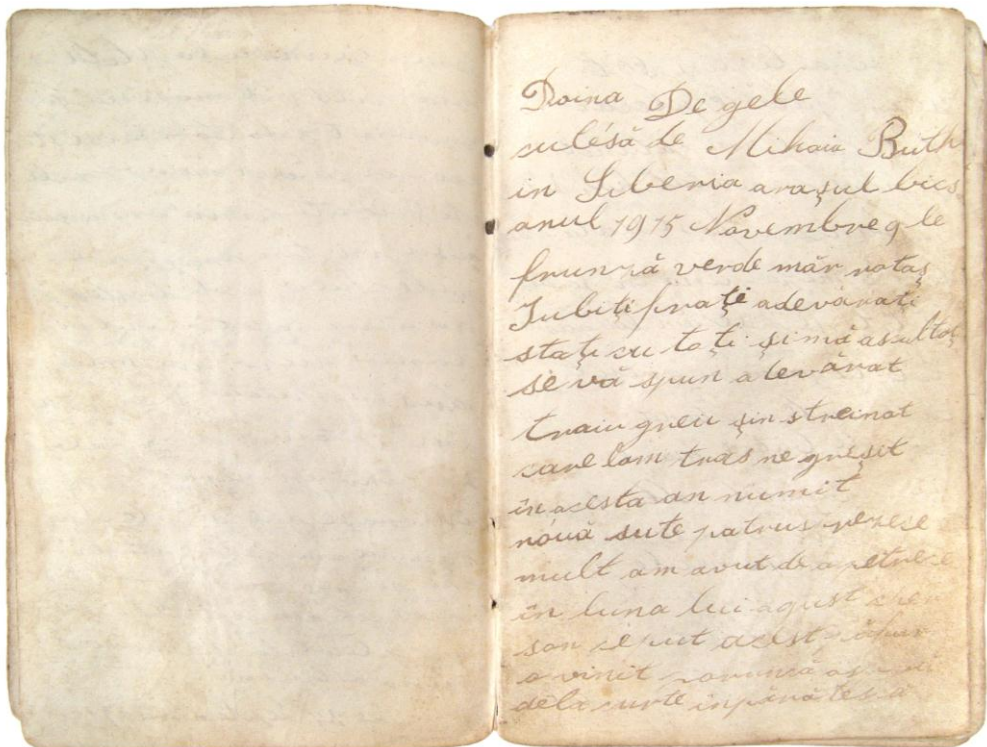 Doina De gele
culésă de Mihaia Buth
in Siberia arașul bics
anul 1915 Novembre 9 le
frunză verde măr rotaș
Iubiți frați adevărați
stați cu toți și mă ascultaș
se vă spun adevărat
traiu greu șin streinat
care lam tras ne greșit
in acesta an numit
nóuă sute patrusprezece
mult am avut de a petrece
în luna lui agust
san ceput acest
a vinit poruncă
dela curte inpărătesca